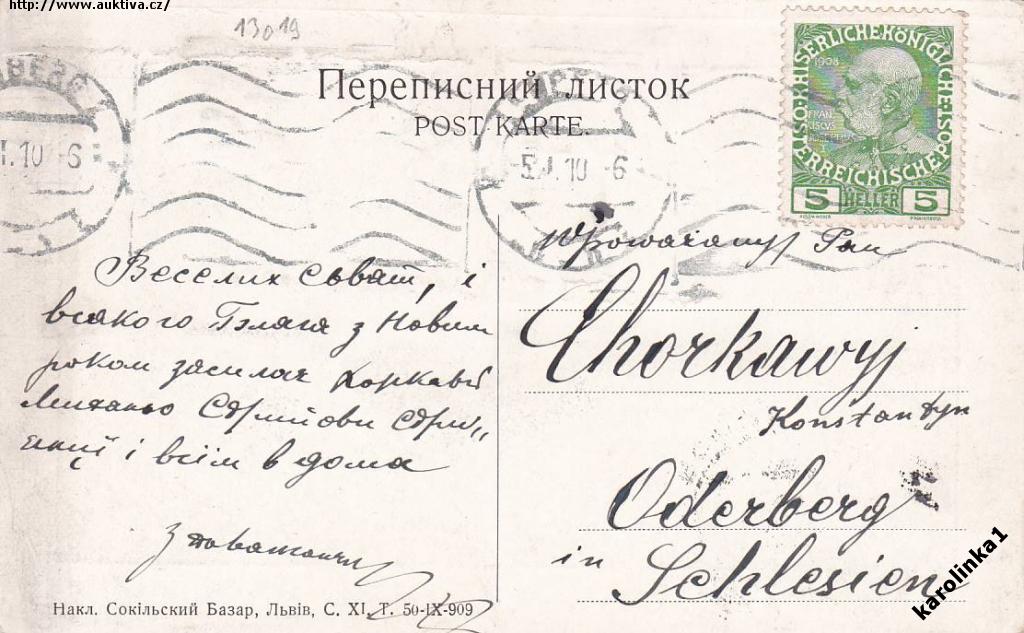 http://www.auktiva.cz/
13019
Переписний листок
POST KARTE.
KAISERLICHE KÖNIGLICHE
ÖSTERREICHISCHE
1908
5 HELLER 5
BERG
I. 10 -6
-5. I. 10 -6
Wpoważany Pan
Chorkawyj
Konstantyn
Oderberg
in Schlesien
Веселих сьват, і
всякого блага з Новим
роком засилає Хоркавій
Михайло
і всім в дома
З поважанням
Накл. Сокільский Базар, Львів, С. XI. Т. 50-IX-909
karolinka1